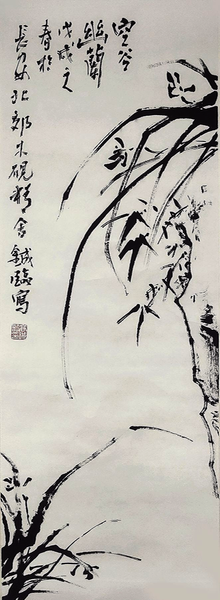 空谷
幽蘭
戊戌之
春於
長安北郊木硯精舍鉞臨寫